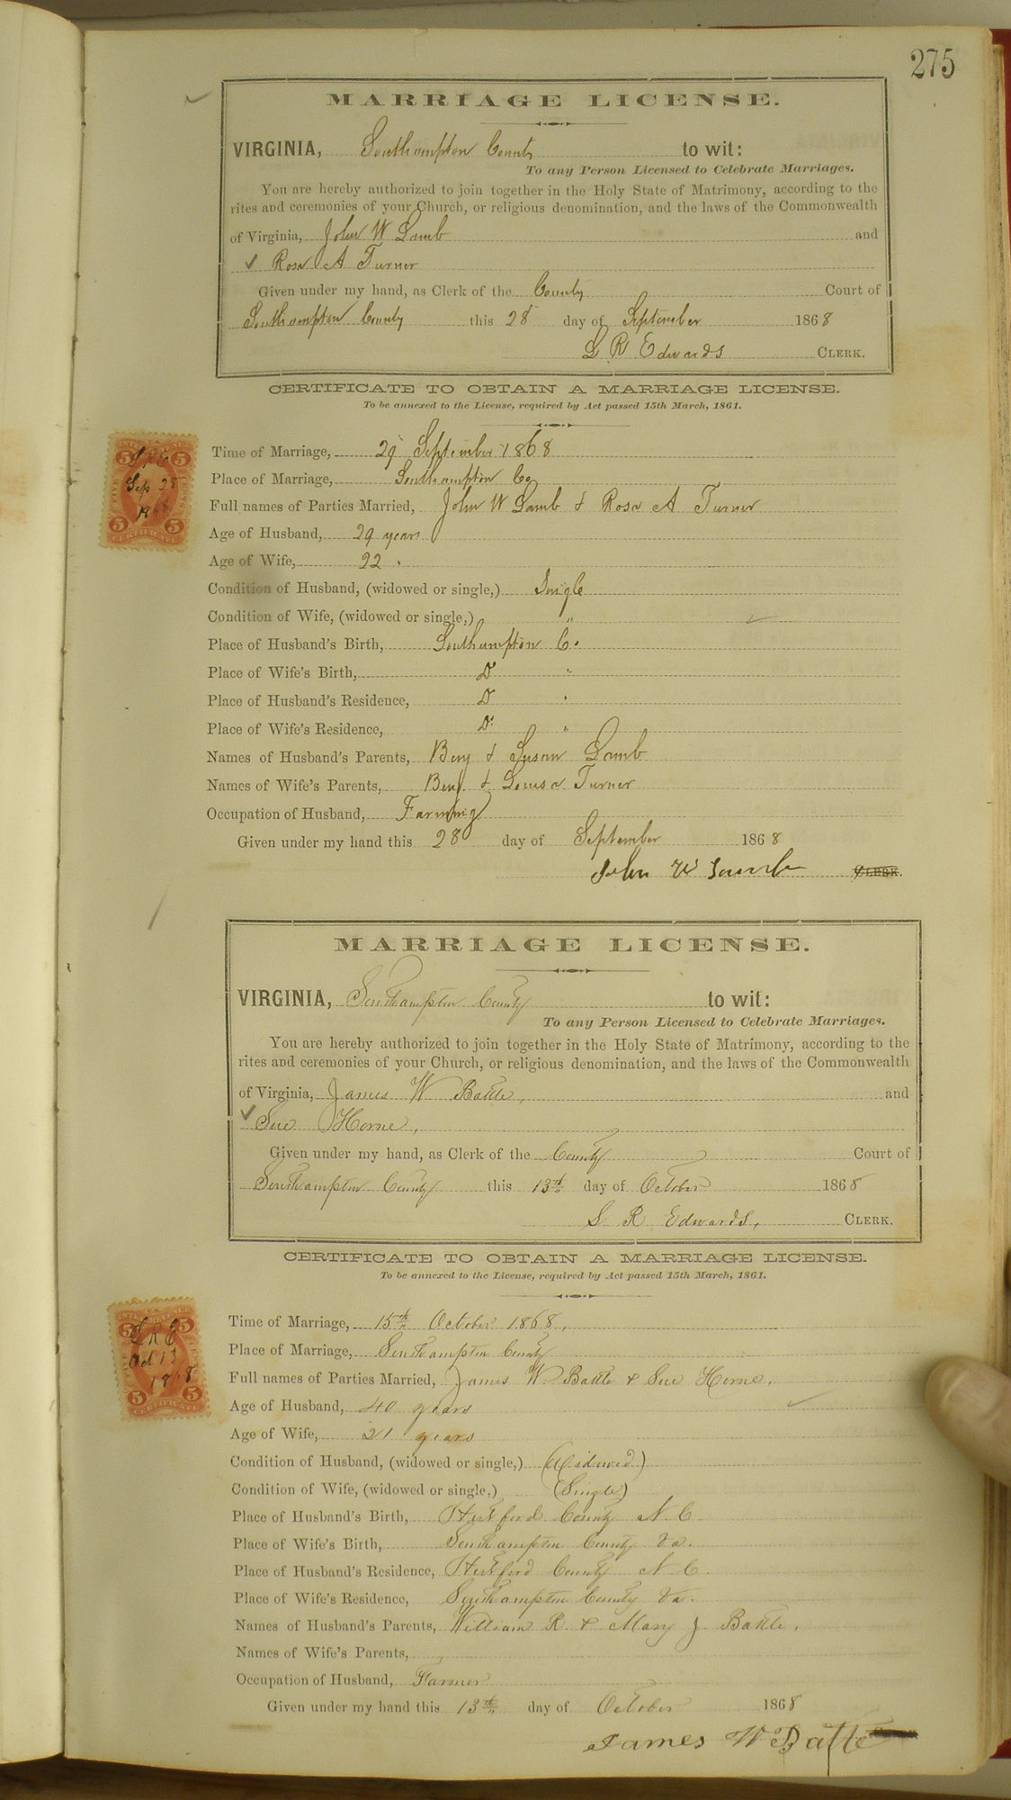 275
MARRIAGE LICENSE.
VIRGINIA, Southampton County to wit:
To any Person Licensed to Celebrate Marriages.
You are hereby authorized to join together in the Holy State of Matrimony, according to the
rites and ceremonies of your Church, or religious denomination, and the laws of the Commonwealth
of Virginia, John W Lamb and
✓ Rosa A Turner
Given under my hand, as Clerk of the County Court of
Southampton County this 28 day of September 1868
L R Edwards CLERK.
CERTIFICATE TO OBTAIN A MARRIAGE LICENSE.
To be annexed to the License, required by Act passed 15th March, 1861.
5 L R E 5
Sep 28
1868
5 5
CERTIFICATE
Time of Marriage, 29 September 1868
Place of Marriage, Southampton Co
Full names of Parties Married, John W Lamb & Rosa A Turner
Age of Husband, 29 years
Age of Wife, 22 "
Condition of Husband, (widowed or single,) Single
Condition of Wife, (widowed or single,) "
Place of Husband's Birth, Southampton Co.
Place of Wife's Birth, D "
Place of Husband's Residence, D "
Place of Wife's Residence, D "
Names of Husband's Parents, Benj & Susan Lamb
Names of Wife's Parents, Benj. & Louisa Turner
Occupation of Husband, Farming
Given under my hand this 28 day of September 1868
John W Lamb CLERK.
MARRIAGE LICENSE.
VIRGINIA, Southampton County to wit:
To any Person Licensed to Celebrate Marriages.
You are hereby authorized to join together in the Holy State of Matrimony, according to the
rites and ceremonies of your Church, or religious denomination, and the laws of the Commonwealth
of Virginia, James W Battle, and
✓ Sue Horne,
Given under my hand, as Clerk of the County Court of
Southampton County this 13th day of October 1868
L R Edwards, CLERK.
CERTIFICATE TO OBTAIN A MARRIAGE LICENSE.
To be annexed to the License, required by Act passed 15th March, 1861.
5 L R E 5
Oct 13
1868
5 5
CERTIFICATE
Time of Marriage, 15th October 1868,
Place of Marriage, Southampton County
Full names of Parties Married, James W Battle & Sue Horne.
Age of Husband, 40 years
Age of Wife, 21 years
Condition of Husband, (widowed or single,) (Widowed)
Condition of Wife, (widowed or single,) (Single)
Place of Husband's Birth, Hertford County N C.
Place of Wife's Birth, Southampton County Va.
Place of Husband's Residence, Hertford County N C.
Place of Wife's Residence, Southampton County Va.
Names of Husband's Parents, William R. & Mary J. Battle,
Names of Wife's Parents,
Occupation of Husband, Farmer
Given under my hand this 13th day of October 1868
James W Battle